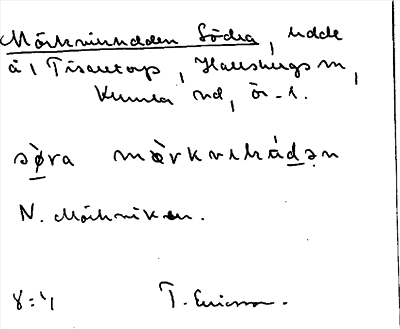 Mörkviksudden Södra, udde
å 1 Tisaretorp, Hallsbergs sn,
Kumla hd, ör. l.
sø̀ra mærkvikṣùdən
N. Mörkviken.
T. Ericsson.